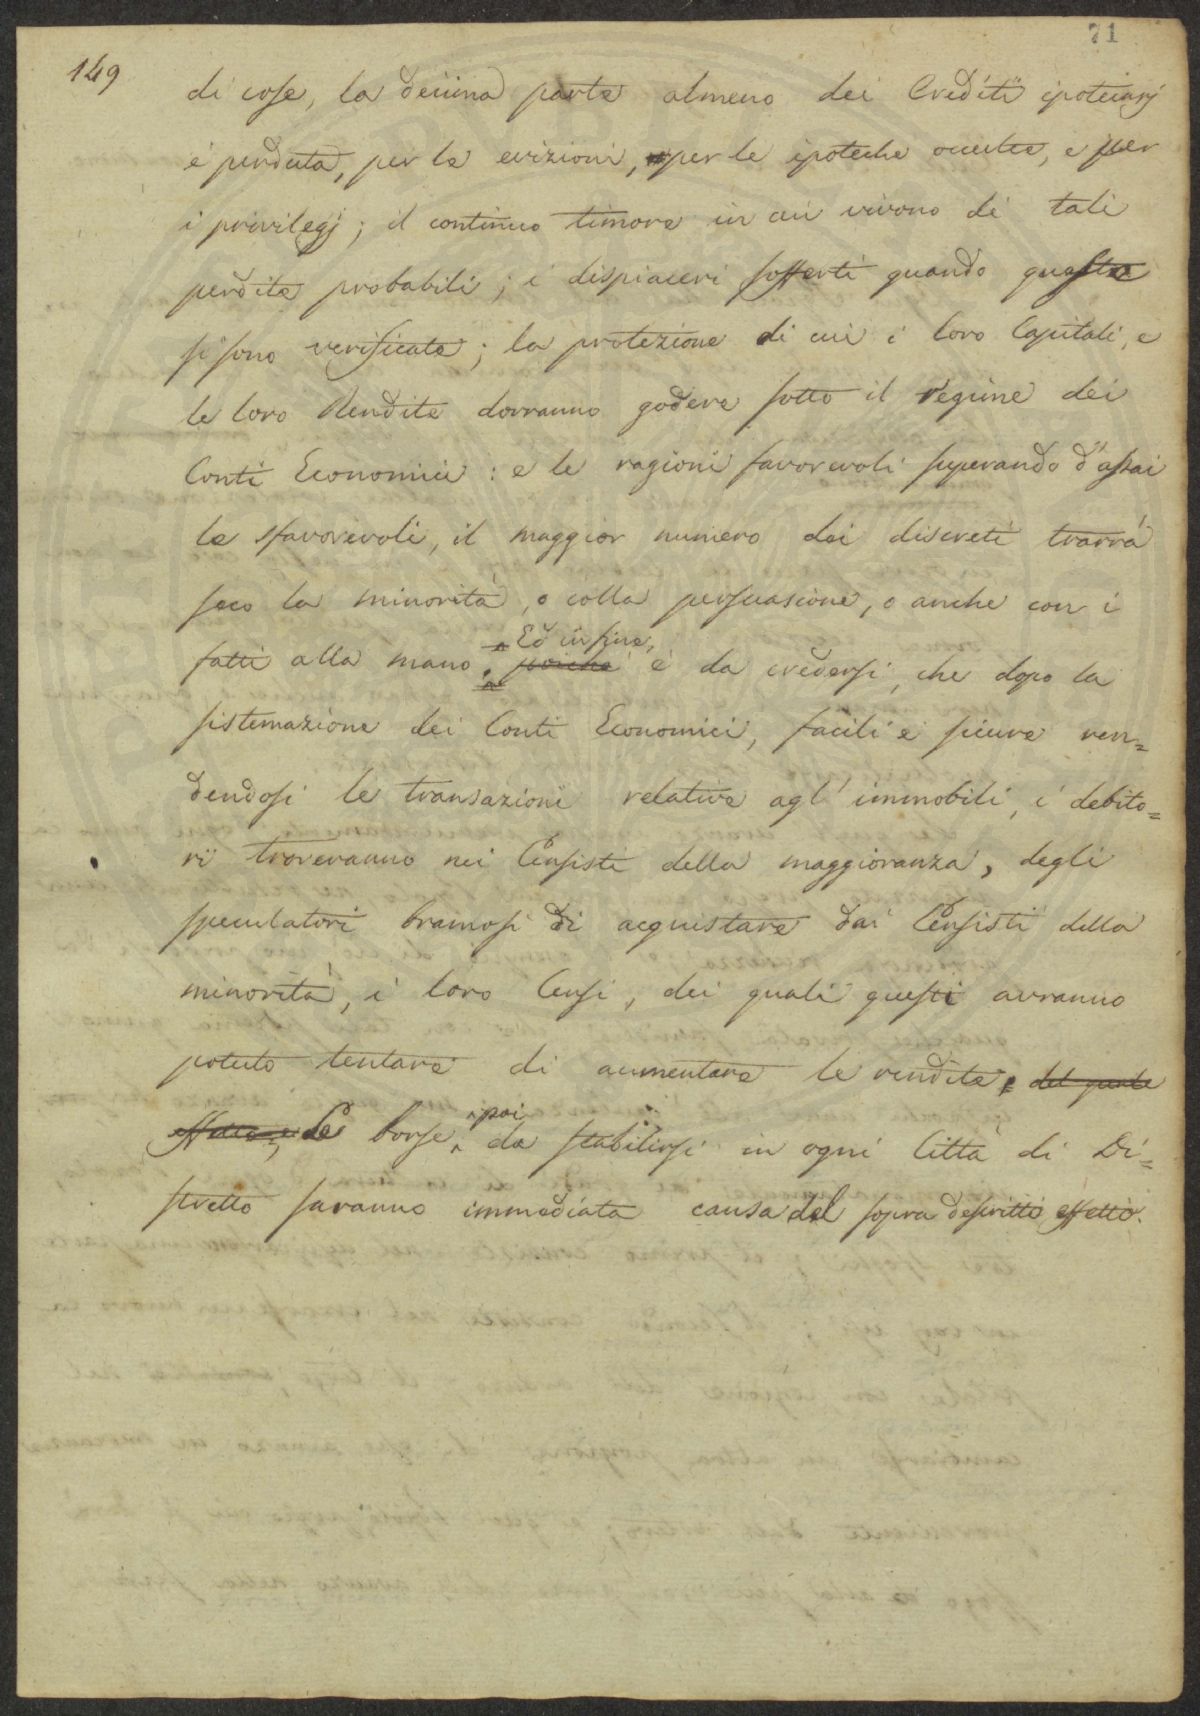 71
149
di cose, la decima parte almeno dei Crediti ipotecarj
è perduta, per le evizioni, per le ipoteche occulte, e per
i privilegj; il continuo timore in cui vivono di tali
perdite probabili; i dispiaceri sofferti quando queste
si sono verificate; la protezione di cui i loro Capitali, e
le loro Rendite dovranno godere sotto il regime dei
Conti Economici: e le ragioni favorevoli superando d'assai
le sfavorevoli, il maggior numero dei discreti trarrà
seco la minorità, o colla persuasione, o anche con i
Ed in fine,
fatti alla mano. poichè è da credersi, che dopo la
sistemazione dei Conti Economici, facili e sicure ren=
dendosi le transazioni relative agl'immobili, i debito=
ri troveranno nei Censisti della maggioranza, degli
speculatori bramosi di acquistare dai Censisti della
minorità, i loro Censi, dei quali questi avranno
potuto tentare di aumentare le rendite, del quale
poi
Le borse da stabilirsi in ogni Città di Di=
stretto saranno immediata causa del sopra descritto effetto.